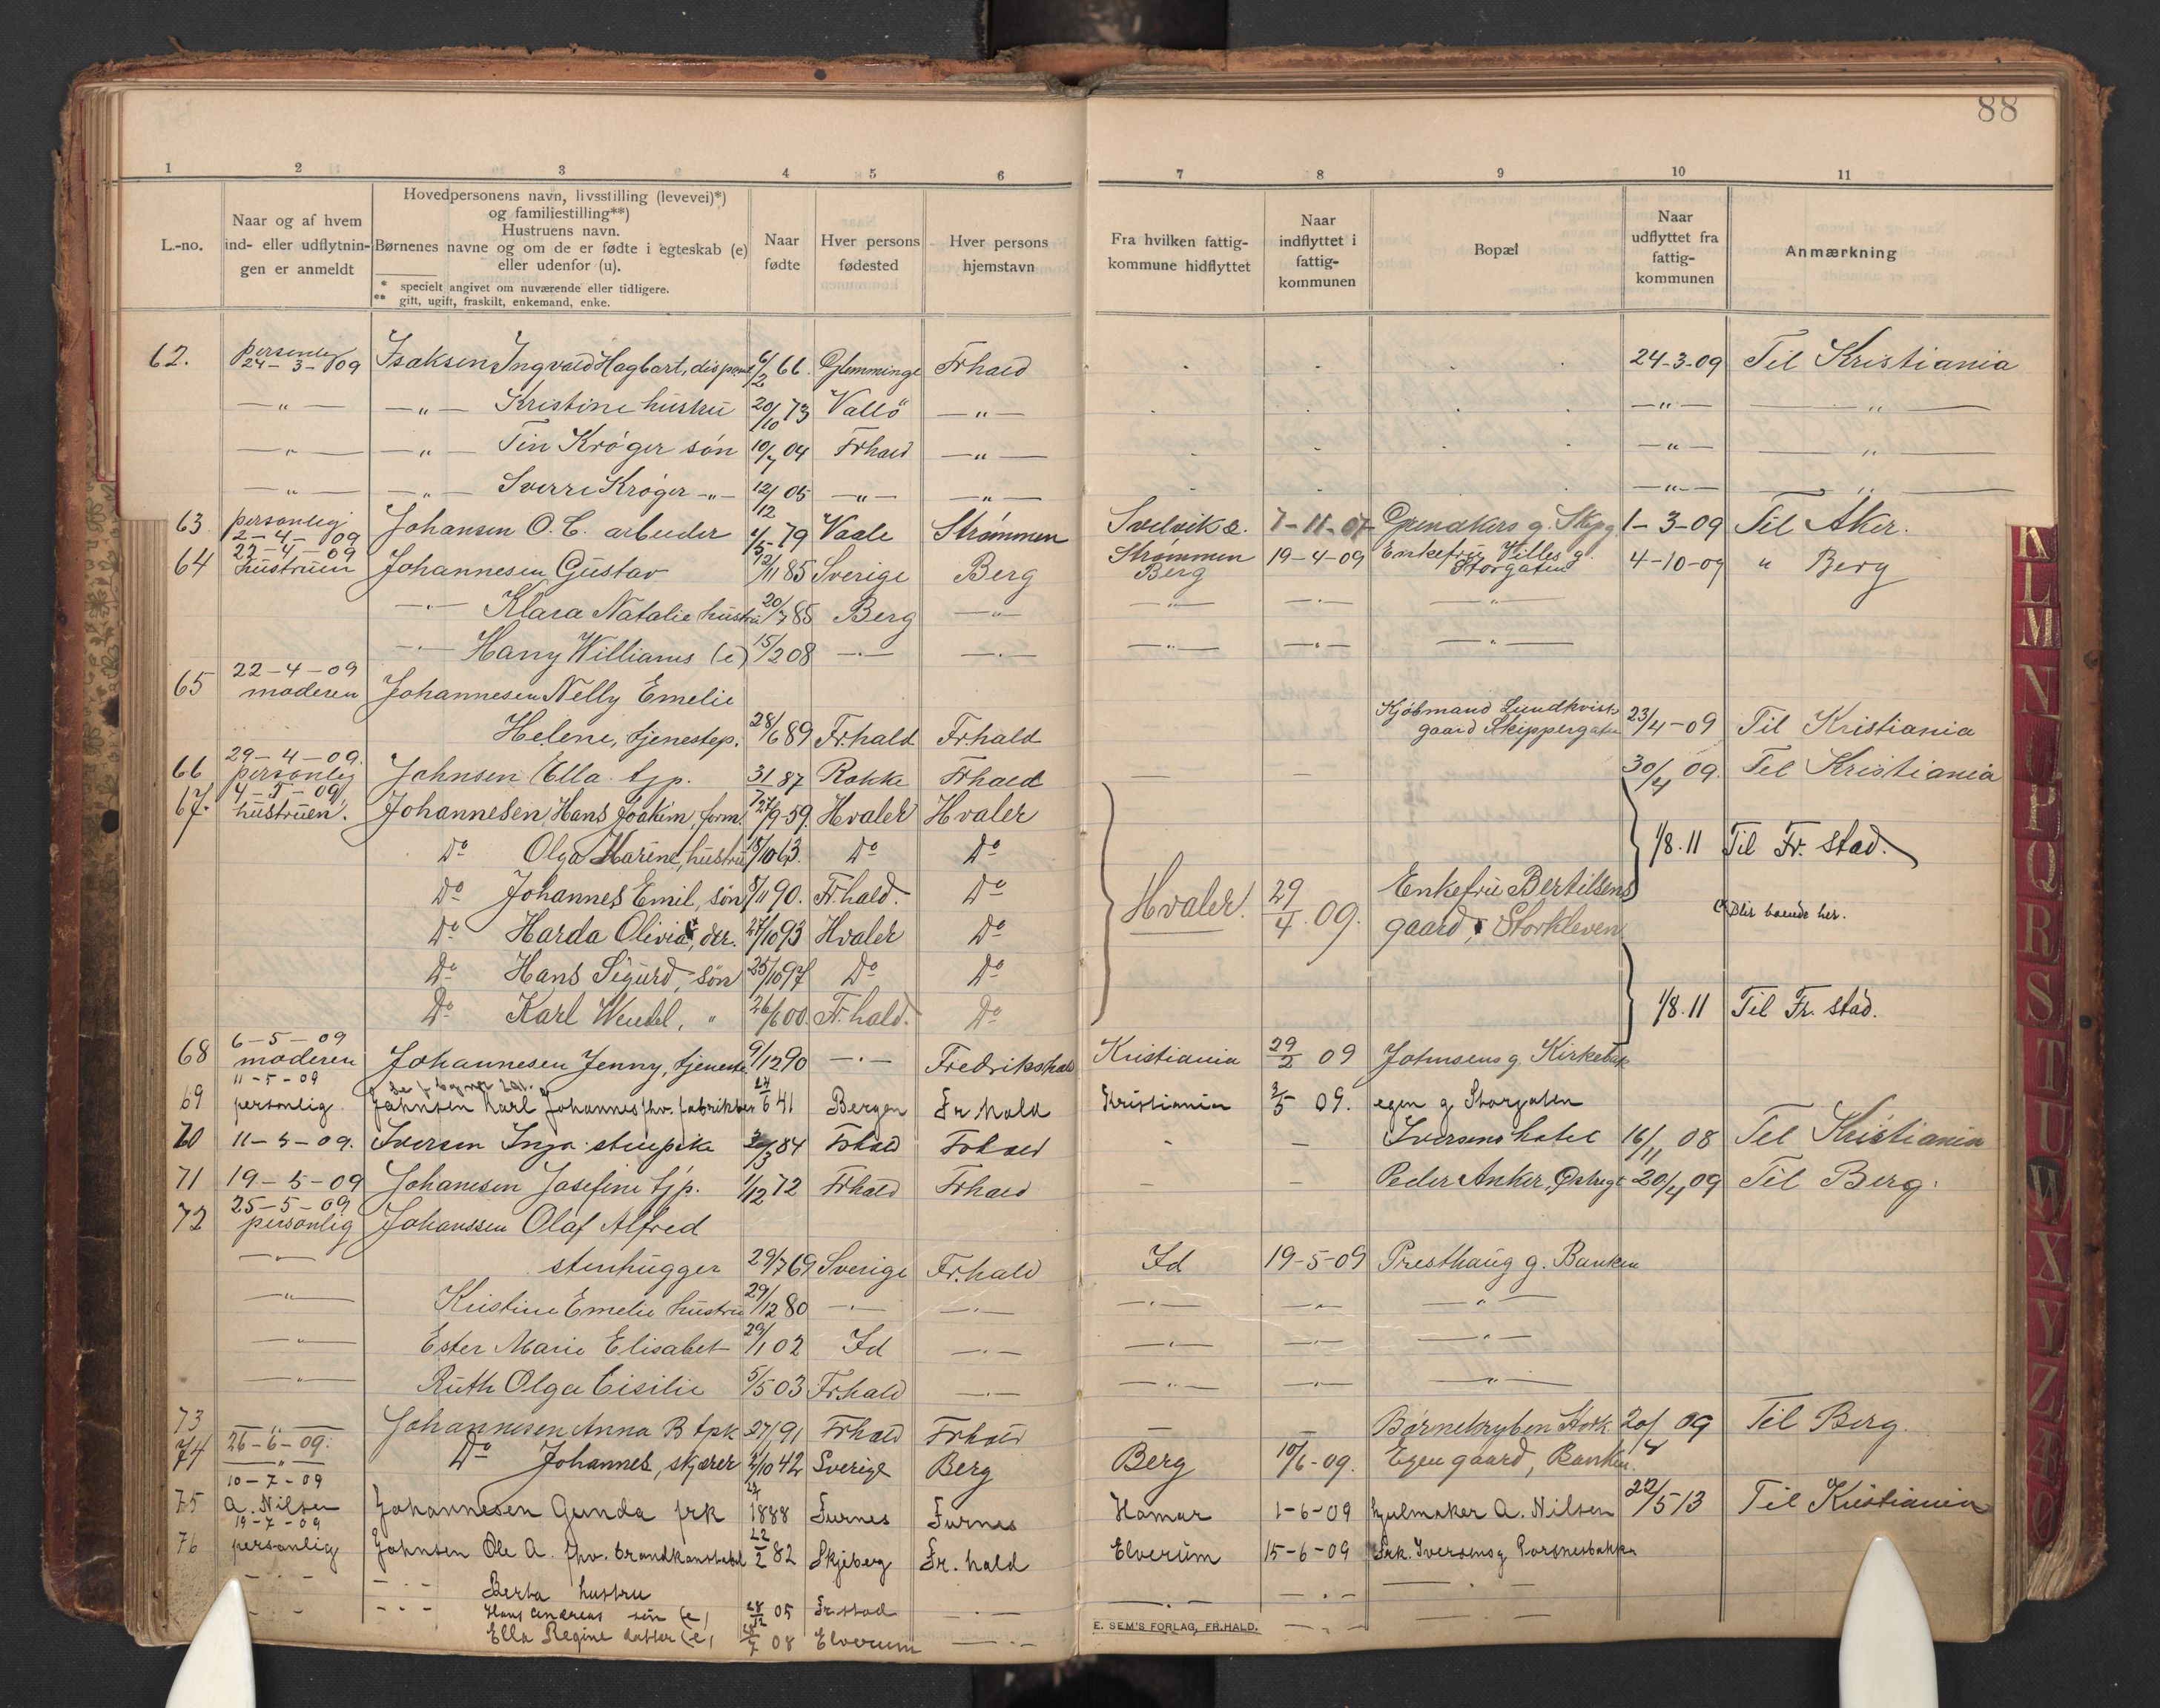 88
1 2 3 4 5 6 7 8 9 10 11
L.-no.
Naar og af hvem
ind- eller udflytnin-
gen er anmeldt
Hovedpersonens navn, livsstilling (levevei)*)
og familiestilling**)
Hustruens navn.
Børnenes navne og om de er fødte i egteskab (e)
eller udenfor (u).
* specielt angivet om nuværende eller tidligere.
** gift, ugift, fraskilt, enkemand, enke.
Naar
fødte
Hver persons
fødested
Hver persons
hjemstavn
Fra hvilken fattig-
kommune hidflyttet
Naar
indflyttet i
fattig-
kommunen
Bopæl
Naar
udflyttet fra
fattig-
kommunen
Anmærkning
62. personlig 24-3-09 Isaksen Ingvald Hagbart, dispont 6/2 66. Glemminge Frhald 24-3-09 Til Kristiania
—"— —"— Kristine hustru 20/10 73 Vallö —"— —"— —"—
—"— —"— Tin Krøger søn 10/7 04 Frhald —"— —"— —"—
—"— —"— Sverre Krøger —"— 12/12 05 —"— —"— —"— —"—
63 personlig 2-4-09 Johansen O. C. arbeider 4/5 79 Vaale Strømmen Svelvik & Strømmen 7-11-07 g. Skpg. 1-3-09 Til Aker.
64 22-4-09 hustruen Johannesen Gustav 12/11 85 Sverige Berg Berg 19-4-09 Enkefru Villes g. Storgaten 4-10-09 " Berg
—"— Klara Natalie hustru 20/7 85 Berg —"— —"— —"— —"—
—"— Harry Williams (e) 15/2 08 —"— —"— —"— —"— —"—
65 22-4-09 moderen Johannesen Nelly Emelie
Helene, tjenestep. 28/6 89 Fr.hald Fr.hald — — Kjøbmand Lundkvists gaard Skippergaten 23/4-09 Til Kristiania
66 29-4-09. personlig Johnsen Ella tjp. 87 Rokke Frhald — — 30/4 09. Til Kristiania
67. 4-5-09 hustruen. Johannesen, Hans Joakim, form. 27/9-59. Hvaler Hvaler
Do Olga Karine, hustru 18/10 63. Do Do 1/8.11 Til Fr. stad.
Do Johannes Emil, søn 8/11 90. Fr.hald. Do Hvaler. 29/4.09. Enkefru Bertilsens
Do Harda Olivia, dtr. 27/10 93 Hvaler Do gaard, Storkleven Blir boende her.
Do Hans Sigurd, søn 25/10 97 Do Do
Do Karl Wendel, " 26/6 00. Fr.hald. Do 1/8.11 Til Fr. stad.
68 6-5-09 moderen Johannesen Jenny, tjeneste 9/12 90 —"— Fredrikshald Kristiania 29/2 09 Johnsens g. Kirkebak
69 11-5-09 personlig Johnsen Karl Johannes fhv. fabrikbes 24/6 41 Bergen Fr hald Kristiania 3/5 09. egen g Storgaten
70 11-5-09. Iversen Inga stuepike 3/84 Frhald Frhald - — Iversens hotel 16/11 08 Til Kristiania
71 19-5-09 Johansen Josefine tjp. 1/12 72 Frhald Frhald — — Peder Anker, 20/4 09 Til Berg.
72 25-5-09 personlig Johanssen Olaf Alfred
—"— stenhugger 29/7 69 Sverige Fr.hald Id 19-5-09 Presthaug g. Banken
—"— Kristine Emelie hustru 29/12 80 —"— —"— —"— —"— —"—
—"— Ester Marie Elisabet 29/1 02 Id —"— —"— —"— —"—
—"— Ruth Olga Cisilie 5/5 03 Frhald —"— —"— —"— —"—
73 —"— Johannesen Anna B tpk 27/91 Frhald Frhald — — Børnekryben Stork 20/4 09 Til Berg.
74 26-6-09. Do Johannes, skjærer 2/10 42 Sverige Berg Berg 10/6-09. Egen gaard, Banken.
75 10-7-09 A. Nilsen Johannesen Gunda frk 1888 Furnes Furnes Hamar 1-6-09 hjulmaker A. Nilsen 22/5 13 Til Kristiania
76 19-7-09 personlig Johnsen Ole A. fhv. brandkonstabel 22/2 82 Skjeberg Fr. hald Elverum 15-6-09 Frk. Iversens g Porsnesbakke
—"— —"— Berta hustru —"— —"— —"—
—"— —"— Hans Andreas søn (e) 28/12 05 Fr stad —"—
Ella Regine datter (e) 08 Elverum —"—
E. SEM'S FORLAG, FR.HALD.
K
L
M
N
P
Q
R
S
T
U
W
X
Y
Z
Æ
Ø